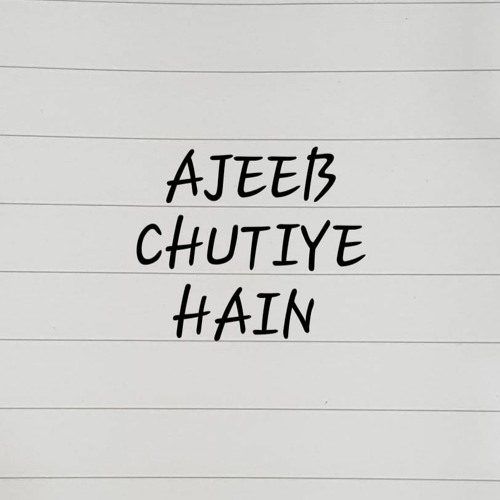 AJEEB
CHUTIYE
HAIN